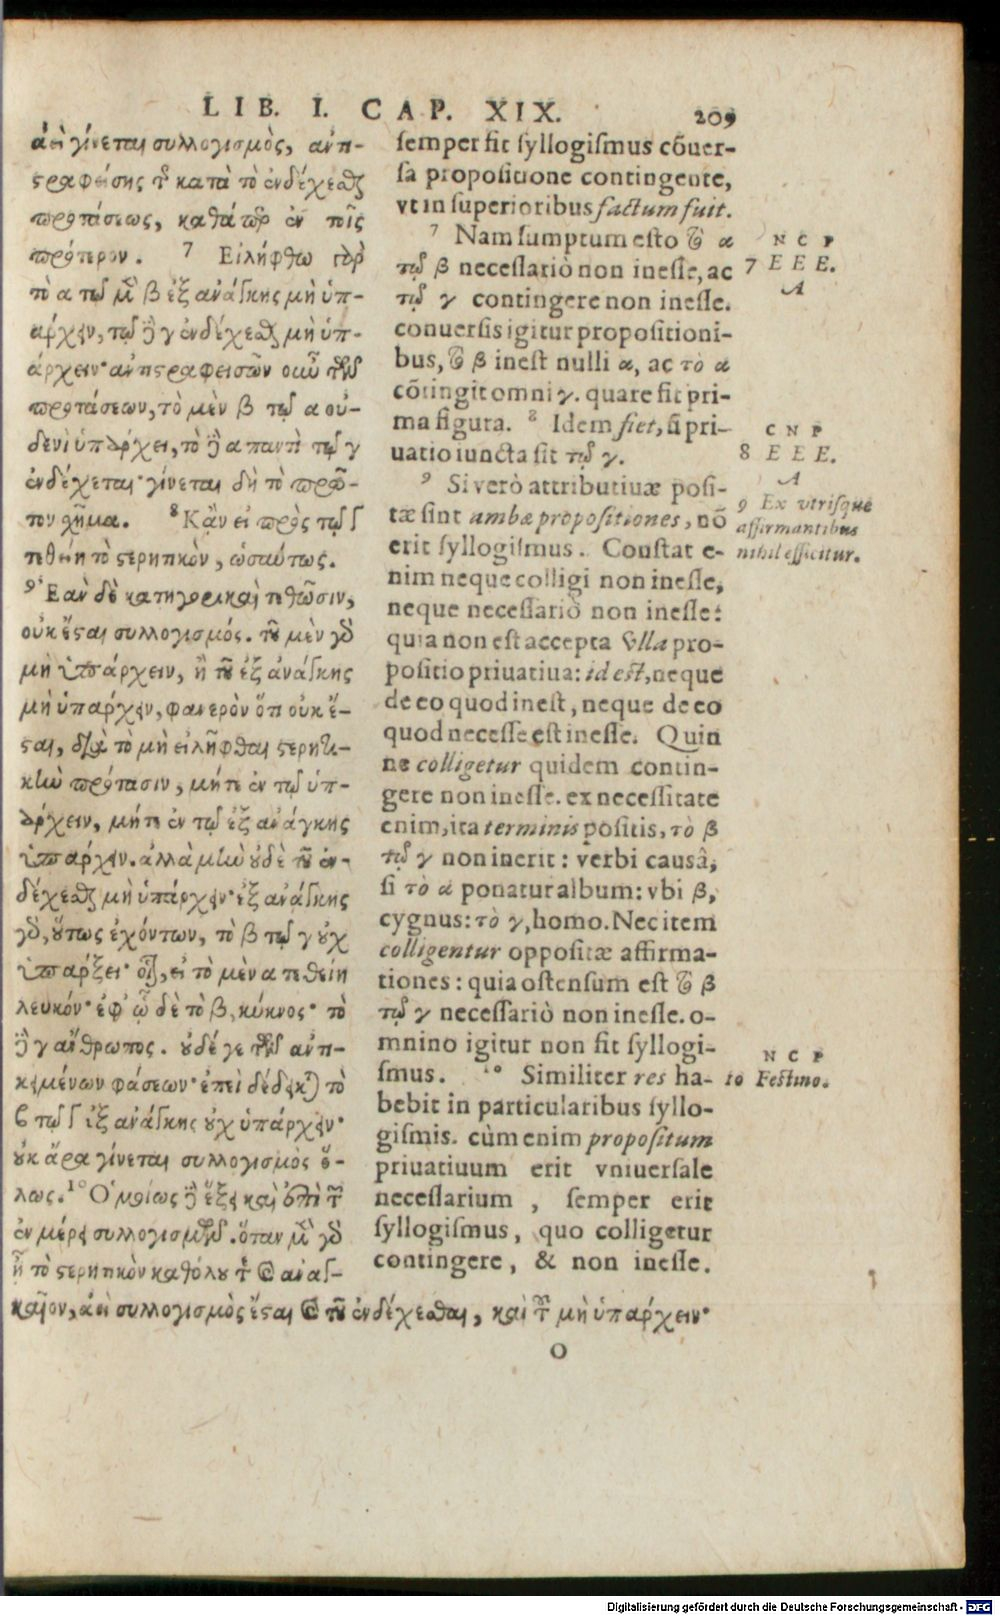 LIB. I. CAP. XIX. 209
ἀεὶ γίνεται συλλογισμὸς, ἀντι-
στραφείσης τ῀ κατὰ τὸ ἐνδέχεσθαι
προτάσεως, καθάπερ ἐν τοῖς
πρότερον. 7 Εἰλήφθω γὰρ
τὸ α τῷ μὲν β ἐξ ἀνάγκης μὴ ὑπ-
άρχειν, τῷ δὲ γ ἐνδέχεσθαι μὴ ὑπ-
άρχειν· ἀντιστραφεισῶν οὖν τῶν
προτάσεων, τὸ μὲν β τῷ α οὐ-
δενὶ ὑπάρχει, τὸ δὲ α παντὶ τῷ γ
ἐνδέχεται· γίνεται δὴ τὸ πρῶ-
τον χῆμα. 8 Κἂν εἰ πρὸς τῷ Γ
τεθείη τὸ στερητικὸν, ὡσαύτως.
9 Ἐὰν δὲ κατηγορικαὶ τεθῶσιν,
οὐκ ἔσται συλλογισμός. τοῦ μὲν γὰρ
μὴ ὑπάρχειν, ἢ τοῦ ἐξ ἀνάγκης
μὴ ὑπάρχειν, φανερὸν ὅτι οὐκ ἔ-
σται, διὰ τὸ μὴ εἰλῆφθαι στερητι-
κὴν πρότασιν, μήτε ἐν τῷ ὑπ-
άρχειν, μήτε ἐν τῷ ἐξ ἀνάγκης
ὑπάρχειν. ἀλλὰ μὴν οὐδὲ τοῦ ἐν-
δέχεσθαι μὴ ὑπάρχειν· ἐξ ἀνάγκης
γὰρ, οὕτως ἐχόντων, τὸ β τῷ γ οὐχ
ὑπάρξει· οἷον, εἰ τὸ μὲν α τεθείη
λευκόν· ἐφ' ᾧ δὲ τὸ β, κύκνος· τὸ
δὲ γ ἄνθρωπος. οὐδέ γε τῶν ἀντι-
κειμένων φάσεων· ἐπεὶ δέδεικται τὸ
β τῷ Γ ἐξ ἀνάγκης οὐχ ὑπάρχειν·
οὐκ ἄρα γίνεται συλλογισμὸς ὅ-
λως. 10 Ὁμοίως δὲ ἕξει καὶ ἐπὶ τῶν
ἐν μέρει συλλογισμῶν. ὅταν μὲν γὰρ
ᾖ τὸ στερητικὸν καθόλου τε καὶ ἀναγ-
καῖον, ἀεὶ συλλογισμὸς ἔσται καὶ τοῦ ἐνδέχεσθαι, καὶ τοῦ μὴ ὑπάρχειν·
semper fit syllogismus cõuer-
sa propositione contingente,
vt in superioribus factum fuit.
7 Nam sumptum esto τὸ α
τῷ β necessariò non inesse, ac
τῷ γ contingere non inesse.
conuersis igitur propositioni-
bus, τὸ β inest nulli α, ac τὸ α
cõtingit omni γ. quare fit pri-
ma figura. 8 Idem fiet, si pri-
uatio iuncta sit τῷ γ.
9 Si verò attributiuæ posi-
tæ sint ambæ propositiones, nõ
erit syllogismus. Constat e-
nim neque colligi non inesse,
neque necessariò non inesse:
quia non est accepta vlla pro-
positio priuatiua: id est, neque
de eo quod inest, neque de eo
quod necesse est inesse. Quin
ne colligetur quidem contin-
gere non inesse. ex necessitate
enim, ita terminis positis, τὸ β
τῷ γ non inerit: verbi causâ,
si τὸ α ponatur album: vbi β,
cygnus: τὸ γ, homo. Nec item
colligentur oppositæ affirma-
tiones: quia ostensum est τὸ β
τῷ γ necessariò non inesse. o-
mnino igitur non fit syllogi-
smus. 10 Similiter res ha-
bebit in particularibus syllo-
gismis. cùm enim propositum
priuatiuum erit vniuersale
necessarium, semper erit
syllogismus, quo colligetur
contingere, & non inesse.
N C P
7 E E E.
A
C N P
8 E E E.
A
9 Ex vtrisque
affirmantibus
nihil efficitur.
N C P
10 Festino.
O
Digitalisierung gefördert durch die Deutsche Forschungsgemeinschaft - DFG